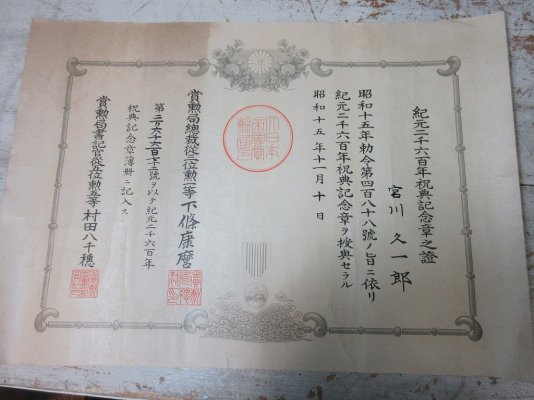 紀元二千六百年祝典記念章之證
宮川久一郎
昭和十五年勅令第四百八十八號ノ旨ニ依リ
紀元二千六百年祝典記念章ヲ授與セラル
昭和十五年十一月十日
大日本
帝國賞
勲局印
賞勲局總裁從三位勲一等下條康麿
ヲ以テ紀元二千六百年
祝典記念章簿冊ニ記入ス
賞勲局書記官從五位勲五等村田八千穂